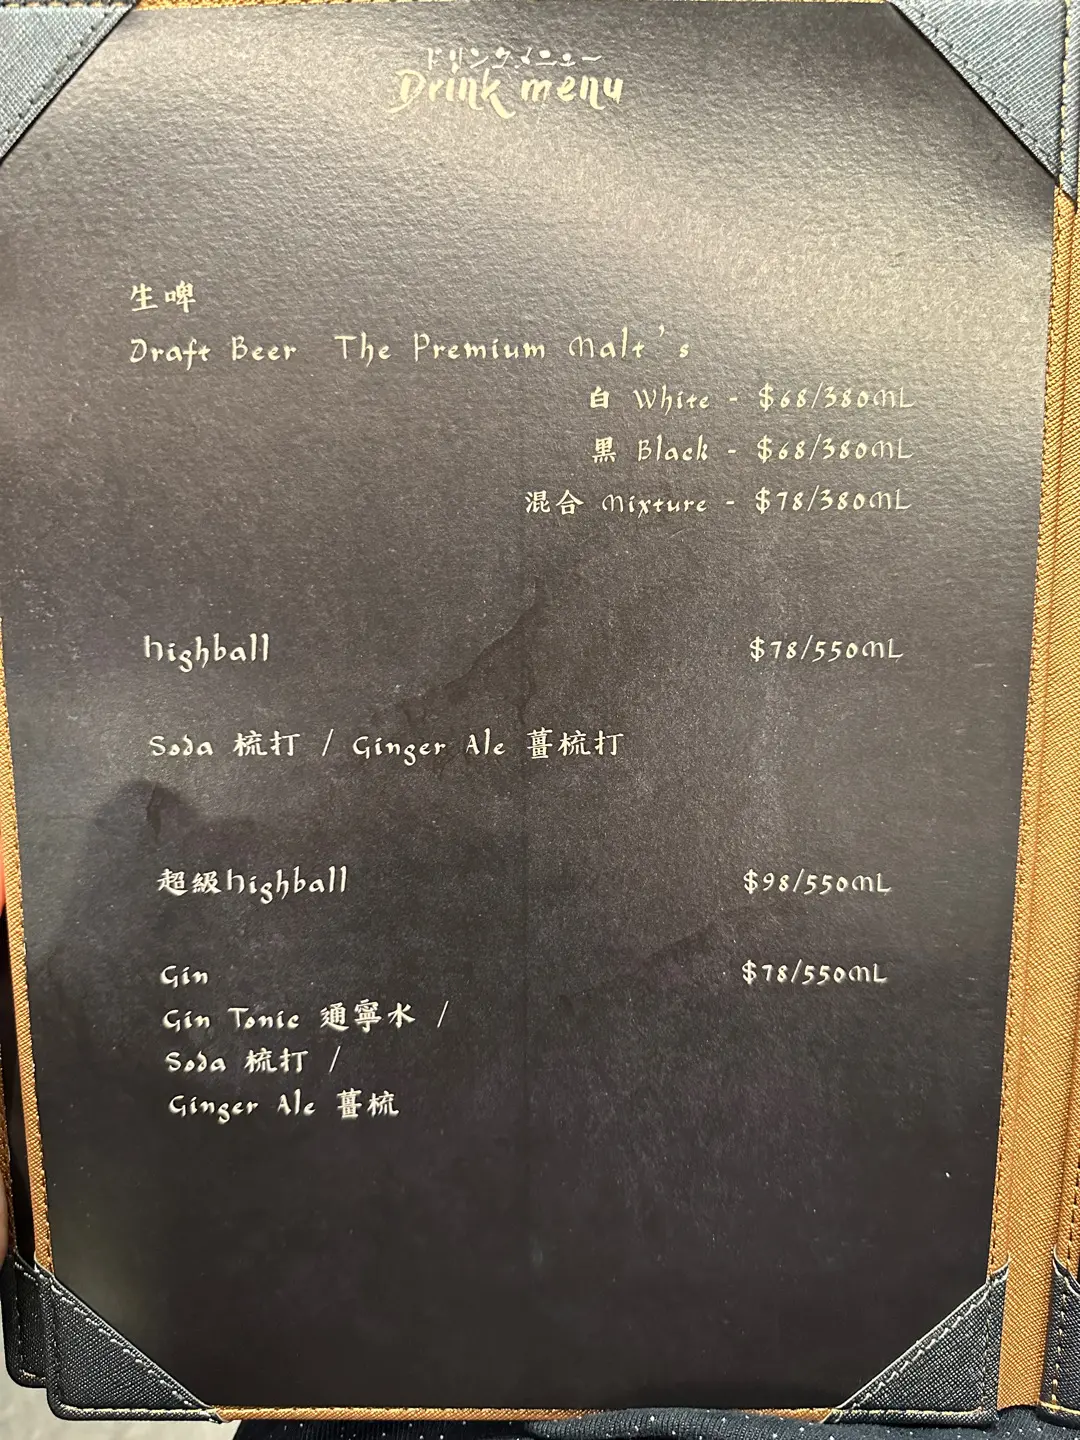 ドリンクメニュー
Drink menu
生啤
Draft Beer The Premium Malt's
白 White - $68/380ML
黒 Black - $68/380ML
混合 Mixture - $78/380ML
highball $78/550ML
Soda 梳打 / Ginger Ale 薑梳打
超級highball $98/550ML
Gin $78/550ML
Gin Tonic 通寧水 /
Soda 梳打 /
Ginger Ale 薑梳